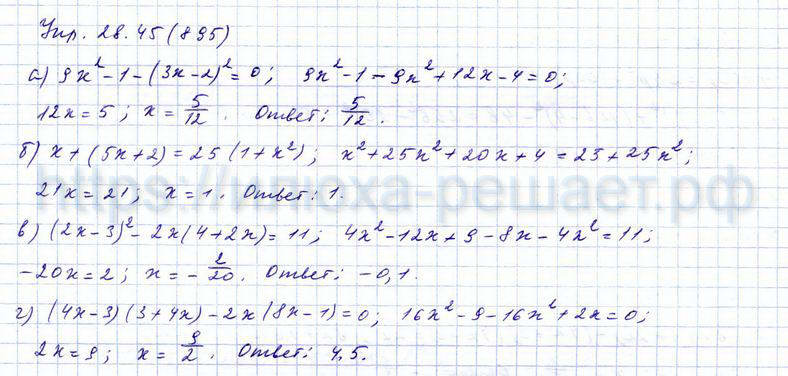 Упр. 28.45 (895)
а) 9x² - 1 - (3x - 2)² = 0; 9x² - 1 - 9x² + 12x - 4 = 0;
12x = 5; x = 5/12. Ответ: 5/12.
б) x + (5x + 2) = 25 (1 + x²); x² + 25x² + 20x + 4 = 25 + 25x²;
21x = 21; x = 1. Ответ: 1.
в) (2x - 3)² - 2x(4 + 2x) = 11; 4x² - 12x + 9 - 8x - 4x² = 11;
-20x = 2; x = - 2/20. Ответ: -0,1.
г) (4x - 3)(3 + 4x) - 2x(8x - 1) = 0; 16x² - 9 - 16x² + 2x = 0;
2x = 9; x = 9/2. Ответ: 4,5.